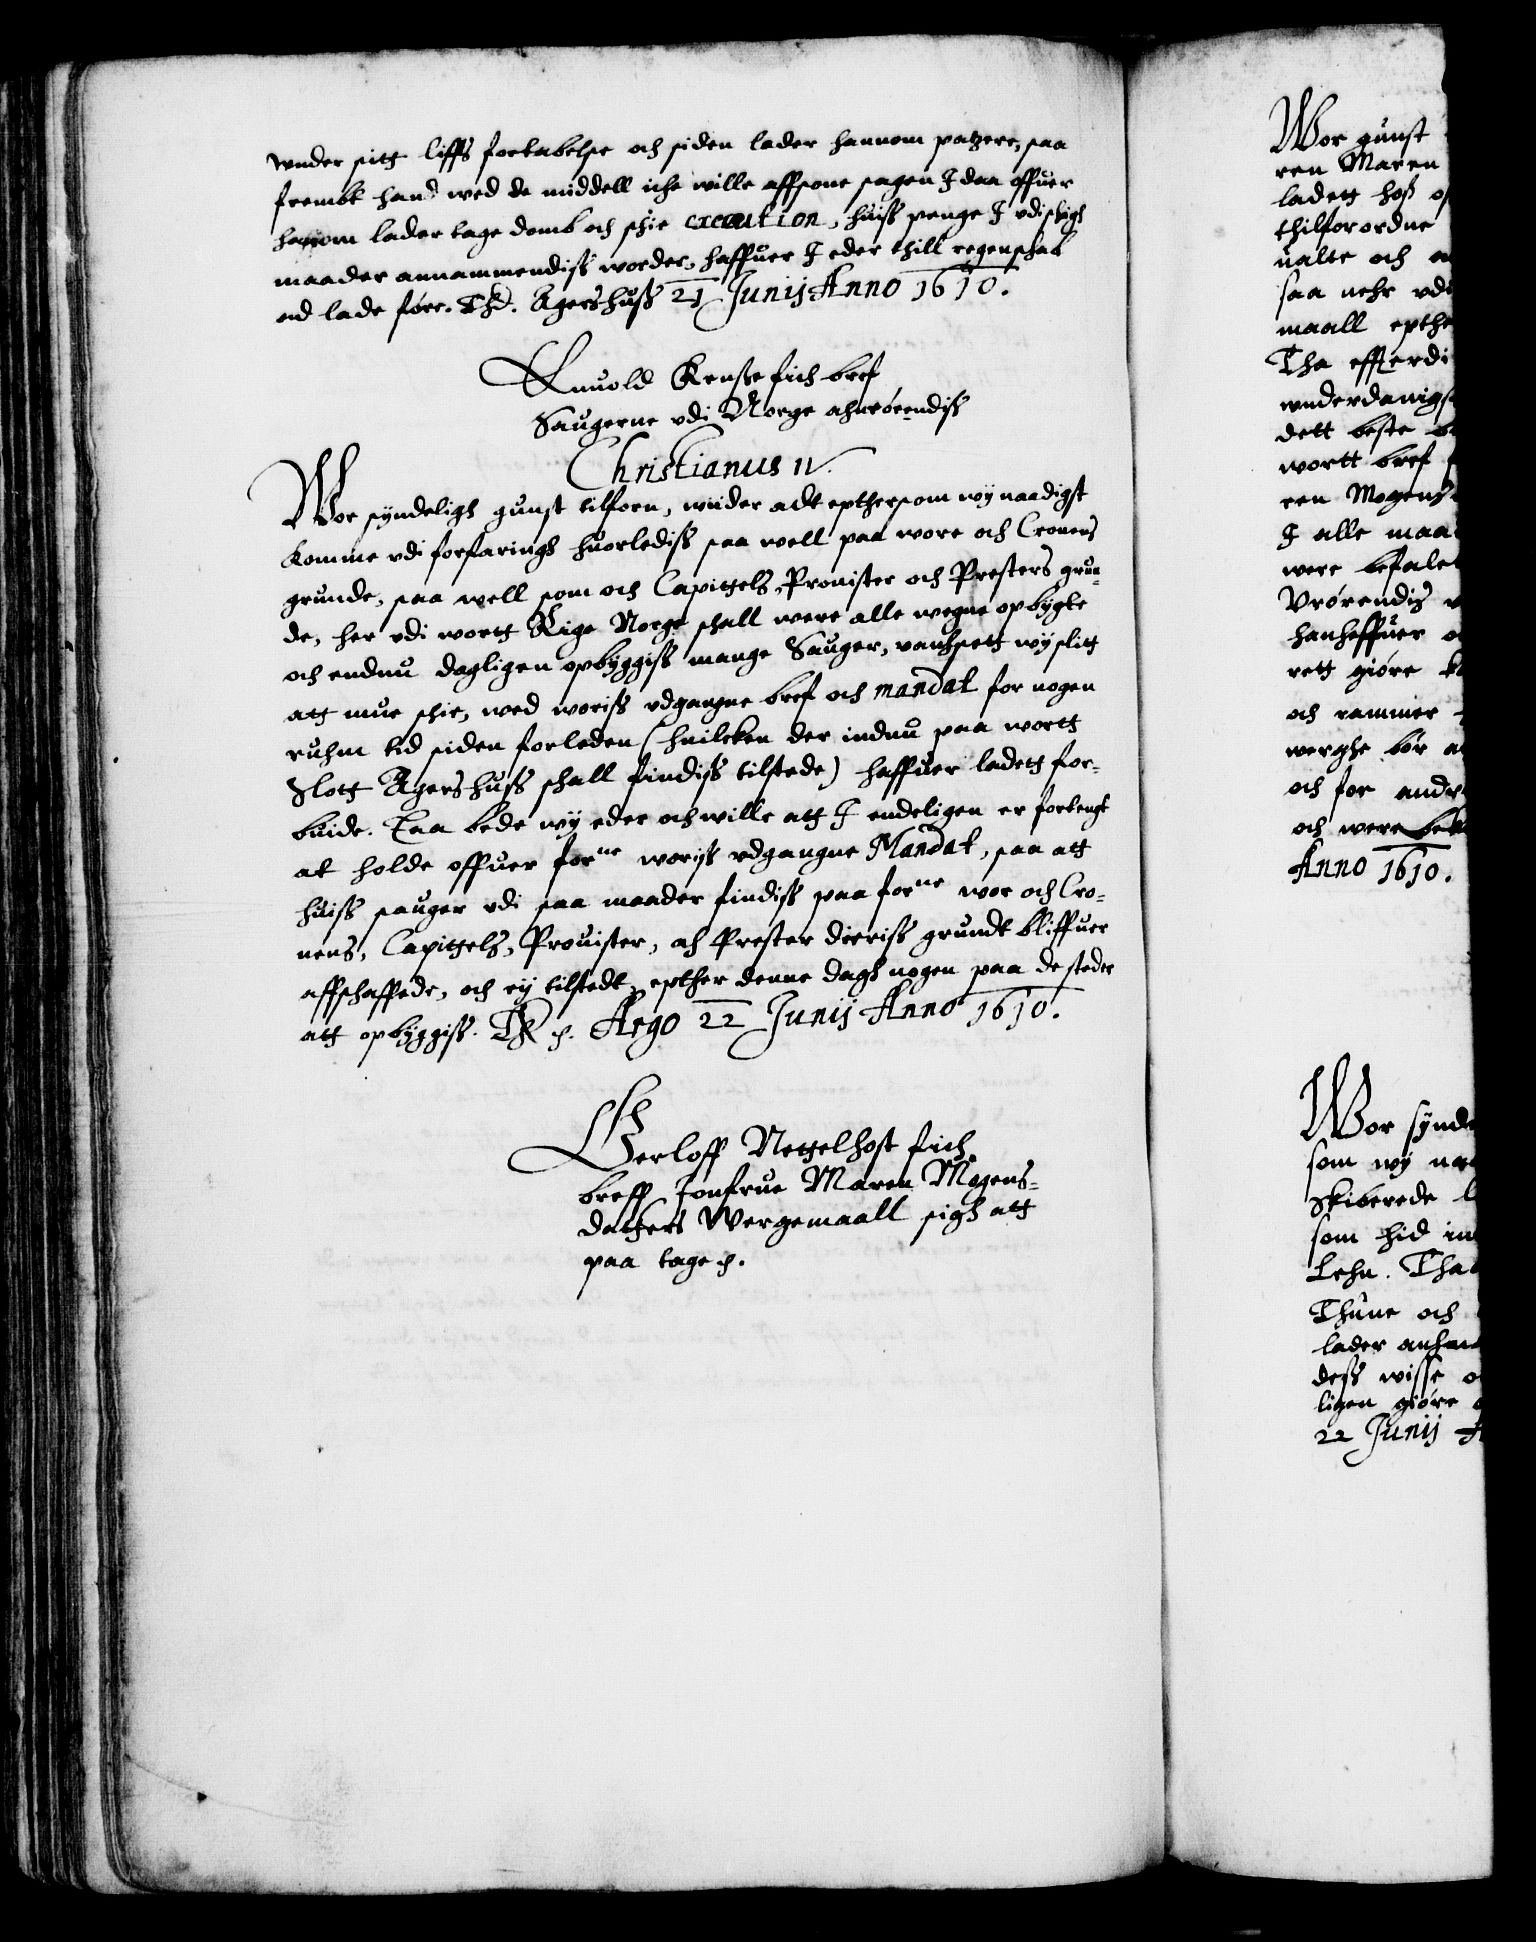 wnder sitt liffs fortabelse och siden lader hannom patzere, saa
frembt hand wed de middell iche wille affsone sagen I daa offuer
hannom lader tage domb och schie execution, huiss penge I vdi slig
maader annammendiss worder, haffuer I eder thill regenschab
ad lade føre. Agershuss 21 Junij Anno 1610.
Enuold Kruse fich bref
Saugerne vdi Norge ahnrørendiss
Christianus IV.
Wor synderligh gunst tilforn, wiider adt epthersom wy naadigst
komme vdi forfaringh huorlediss saa well paa wore och Cronens
grunde, saa well som och Capittels, Prouister och Presters grun-
de, her vdi wortt Rige Norge schall were alle wegne opbygte
och endnu dagligen opbyggiss mange Sauger, uanhsett wy slitt
att mue schie, wed woriss vdgangne bref och mandat for nogen
ruhm tid siden forleden (huilcken der indnu paa wortt
Slott Agershuss schall findiss tilstede) haffuer ladett for-
buide. Taa bede wy eder och wille att I endeligen er fortengt
at holde offuer forne worijs vdgangne Mandat, saa att
huiss sauger vdi saa maader findiss paa forne wor och Cro-
nens, Capittels, Prouister, och Prester dieriss grundt bliffuer
affschaffede, och ey tilstedt, epther denne dagh nogen paa de steder
att opbyggiss. Argo 22 Junij Anno 1610.
Gerloff Nettelhost fich
breff Jonfrue Maren Mogens-
datters Wergemaall sigh att
paa tage
Wor gunst
ren Maren
ladett hoß
thilforordne
ualte och
saa nehr
maall
Tha
wnderdanigs
dett beste
wortt bref
ren Mogens
I alle
were befalet
Vrørendis
hanheffuer
rett giøre
och rammer
werghe bør
och for
och were
Anno 1610.
Wor synde
som wy
Skiberede
som hid
Lehn. Tha
Thune och
lader
dess wisse
ligen giøre
22 Junij